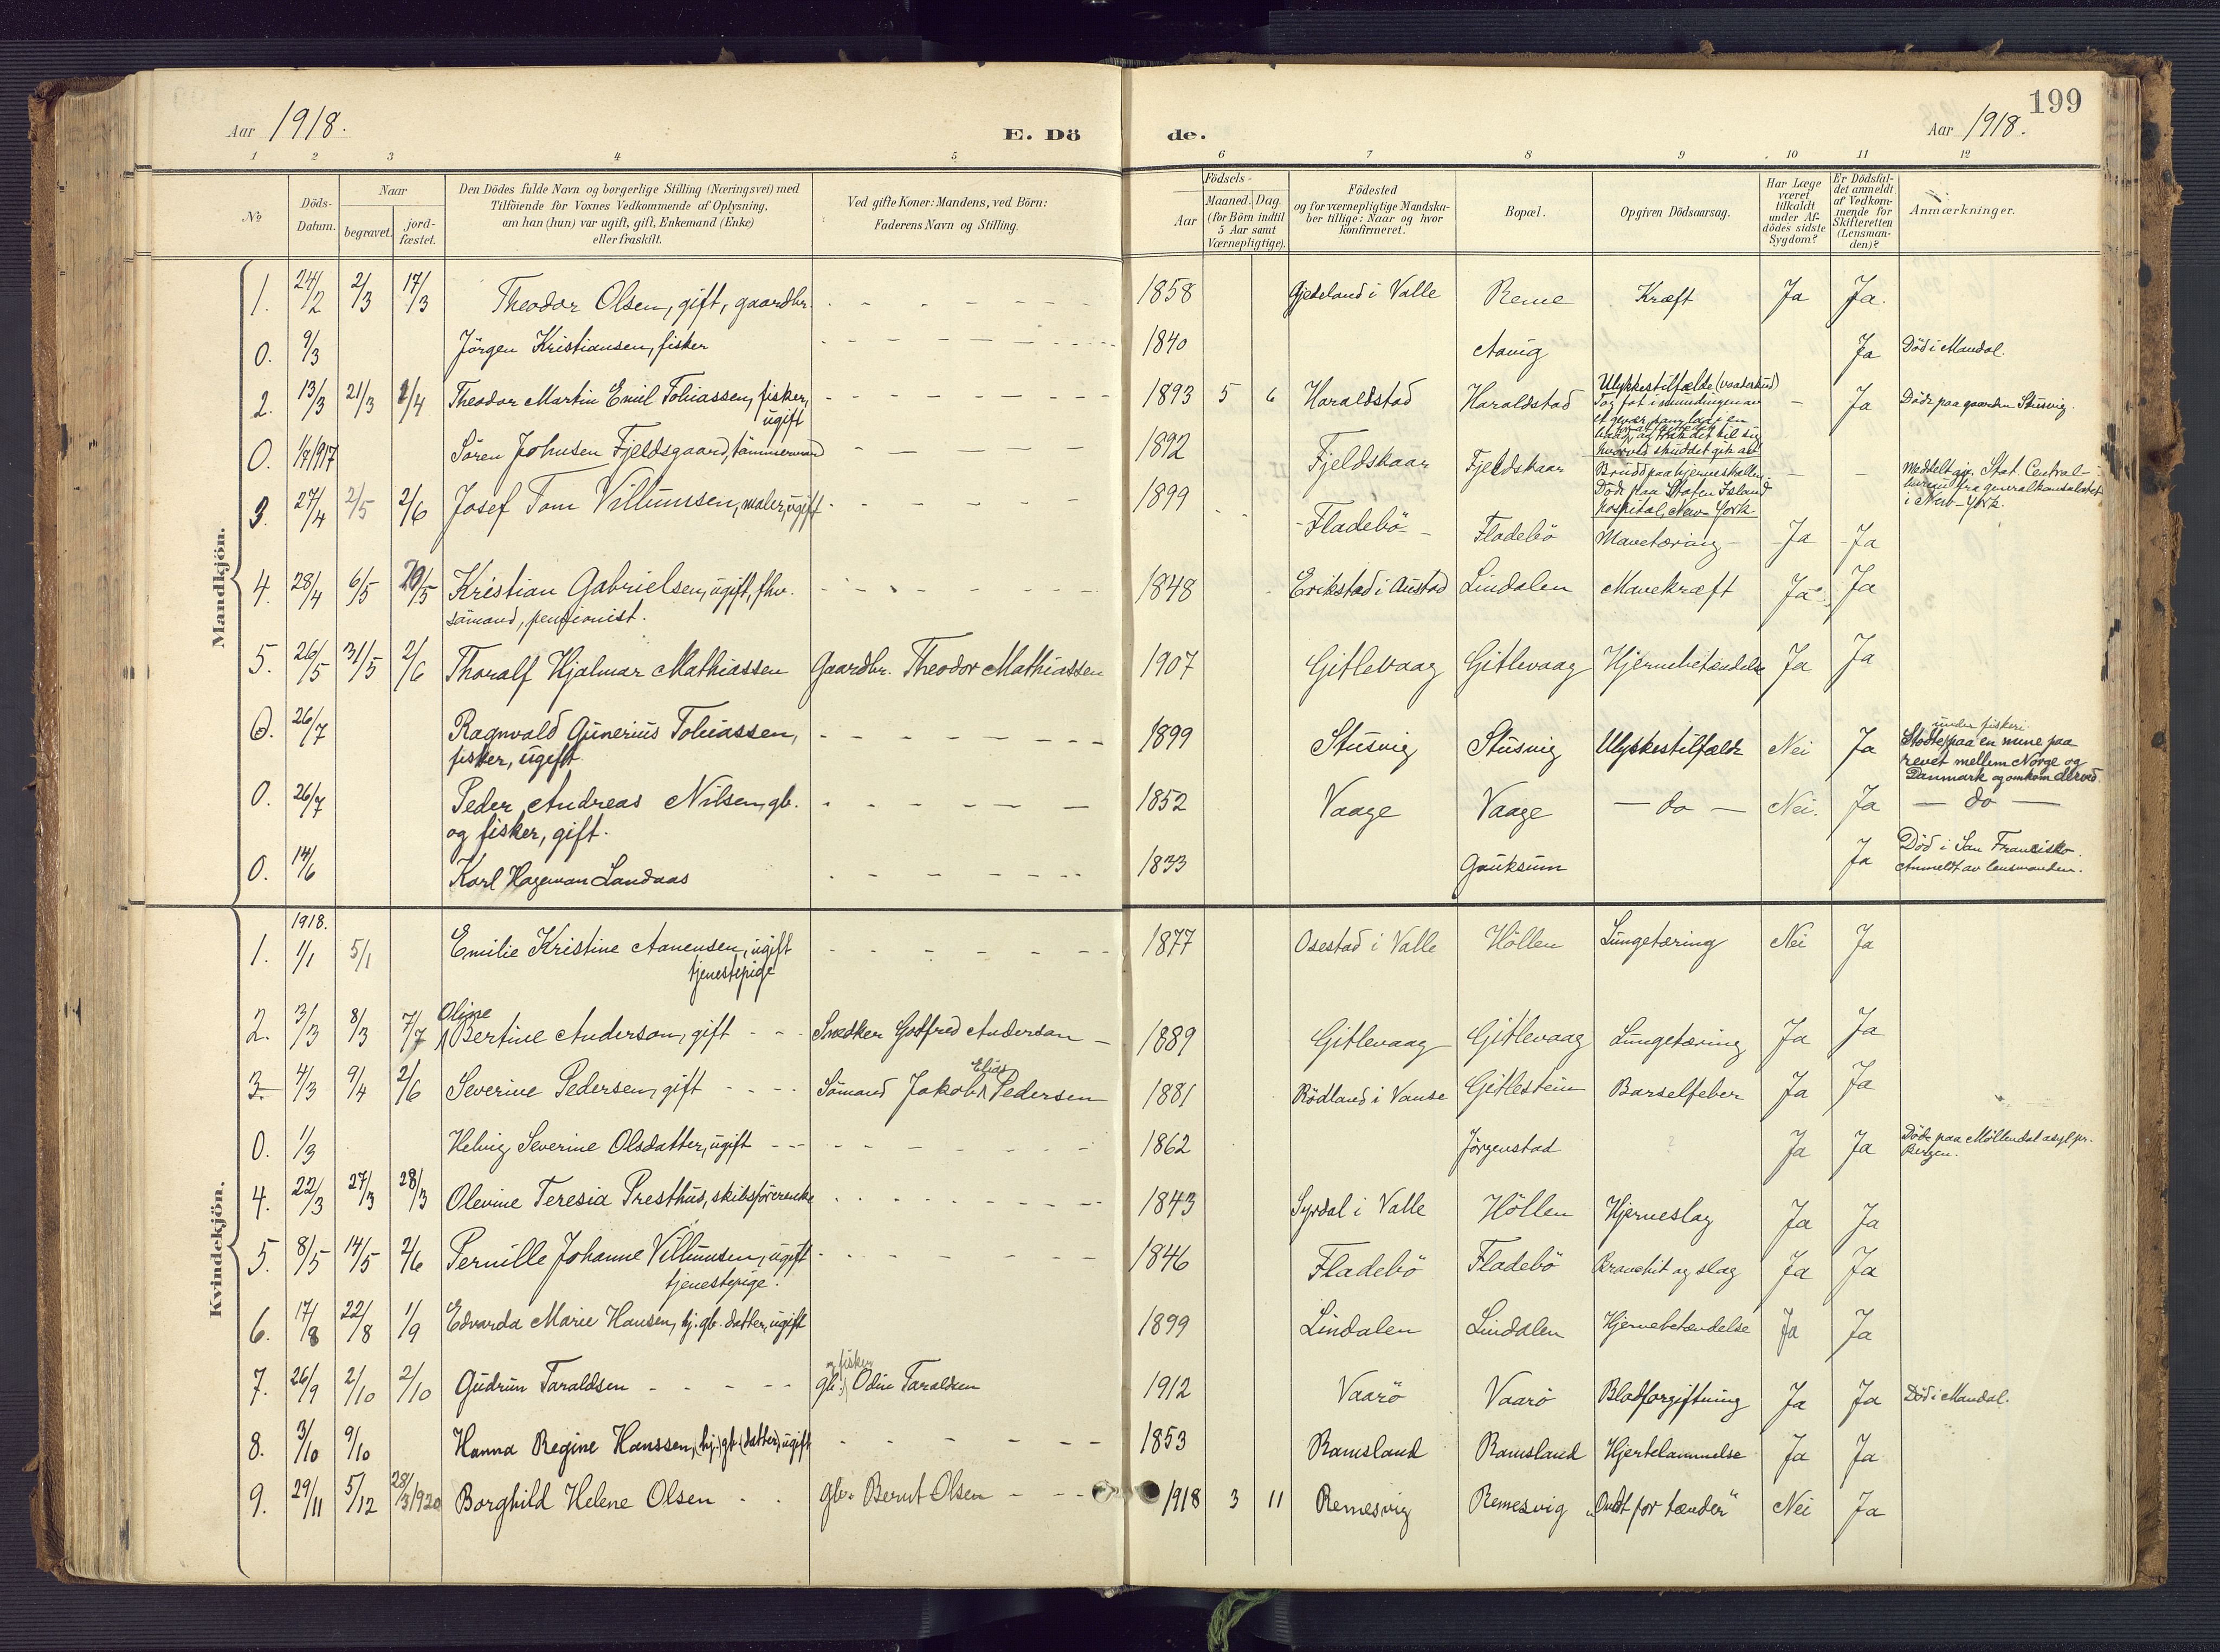 199
Aar 1918. E. Dö de. Aar 1918.
1 2 3 4 5 6 7 8 9 10 11 12
No
Döds-Datum.
Naar
begravet.
jord-fæstet.
Den Dödes fulde Navn og borgerlige Stilling (Næringsvei) med
Tilföiende for Voxnes Vedkommende af Oplysning,
om han (hun) var ugift, gift, Enkemand (Enke)
eller fraskilt.
Ved gifte Koner: Mandens, ved Börn:
Faderens Navn og Stilling.
Födsels-
Aar
Maaned. Dag.
(for Börn indtil
5 Aar samt
Værnepligtige).
Födested
og for værnepligtige Mandska-
ber tillige: Naar og hvor
konfirmeret.
Bopæl.
Opgiven Dödsaarsag.
Har Læge
været
tilkaldt
under Af-
dödes sidste
Sygdom?
Er Dödsfal-
det anmeldt
af Vedkom-
mende for
Skifteretten
(Lensman-
den)?
Anmærkninger.
Mandkjön.
1. 24/2 2/3 17/3 Theodor Olsen, gift, gaardbr. 1858 Gjedeland i Valle Reme Kræft Ja Ja.
0. 9/3 Jörgen Kristiansen, fisker 1840 Aavig Ja Död i Mandal.
2. 13/3 21/3 1/4 Theodor Martin Emil Tobiassen, fisker, ugift 1893 5 6 Haraldstad Haraldstad Ulykkestilfælde (vaadeskud) Tog fat i mundingen av et gevær som laa i en og trak det til sig hvorved skuddet gik af - Ja Döde paa gaarden Stusvig.
0. 1/7 1917 Sören Johnsen Fjeldsgaard, tömmermand 1892 Fjeldskaar Fjeldskaar Brudd paa hjerneskallen Döde paa Staten Island hospital, New-York - - Meddelt av Stat. Central-bureau fra generalkonsulatet i New-York.
3. 27/4 2/5 2/6 Josef Tom Villumsen, maler, ugift 1899 Fladebö Fladebö Mavetæring Ja Ja
4. 28/4 6/5 20/5 Kristian Gabrielsen, ugift, fhv. sömand, pensionist. 1848 Erikstad i Austad Lindalen Mavekræft Ja Ja
5. 26/5 31/5 2/6 Thoralf Hjalmar Mathiassen Gaardbr. Theodor Mathiassen 1907 Gitlevaag Gitlevaag Hjernebetændelse Ja Ja
0. 26/7 Ragnvald Gunerius Tobiassen, fisker, ugift 1899 Stusvig Stusvig Ulykkestilfælde Nei Ja Stödte under fiskeri paa en mine paa revet mellem Norge og Danmark og omkom derved.
0. 26/7 Peder Andreas Nilsen, gb. og fisker, gift. 1852 Vaage Vaage - do - Nei. Ja - do -
0. 14/6 Karl Hageman Landaas 1833 Gauksum Ja Död i San Francisko. Anmeldt av lensmanden.
Kvindekjön.
1918.
1. 1/1 5/1 Emilie Kristine Aanensen, ugift tjenestepige 1877 Osestad i Valle Höllen Lungetæring Nei Ja
2. 3/3 8/3 7/7 Oline Bertine Anderson, gift Snedker Godfred Anderson 1889 Gitlevaag Gitlevaag Lungetæring Ja Ja
3. 4/3 9/4 2/6 Severine Pedersen, gift Sömand Jakob Elias Pedersen 1881 Rödland i Vanse Gitlestein Barselfeber Ja Ja
0. 1/3 Helvig Severine Olsdatter, ugift 1862 Jörgenstad Ja Ja Döde paa Möllendal asyl pr. Bergen.
4. 22/3 27/3 28/3 Olevine Teresia Presthus, skibsförerenke 1843 Syrdal i Valle Höllen Hjerneslag Ja Ja
5. 8/5 14/5 2/6 Pernille Johanne Villumsen, ugift tjenestepige. 1846 Fladebö Fladebö Bronchit og slag Ja Ja
6. 17/8 22/8 1/9 Edvarda Marie Hansen, hj. gb. datter, ugift 1899 Lindalen Lindalen Hjernebetændelse Ja Ja
7. 26/9 2/10 2/10 Gudrun Taraldsen gb. og fisker Odin Taraldsen 1912 Vaarö Vaarö Blodforgiftning Ja Ja Död i Mandal.
8. 3/10 9/10 Hanna Regine Hanssen, (hj.) gb. (datter) ugift 1853 Ramsland Ramsland Hjertelammelse Ja Ja
9. 29/11 5/12 28/3 1920 Borghild Helene Olsen gbr. Bernt Olsen 1918 3 11 Remesvig Remesvig "Ondt for tænder" Nei Ja